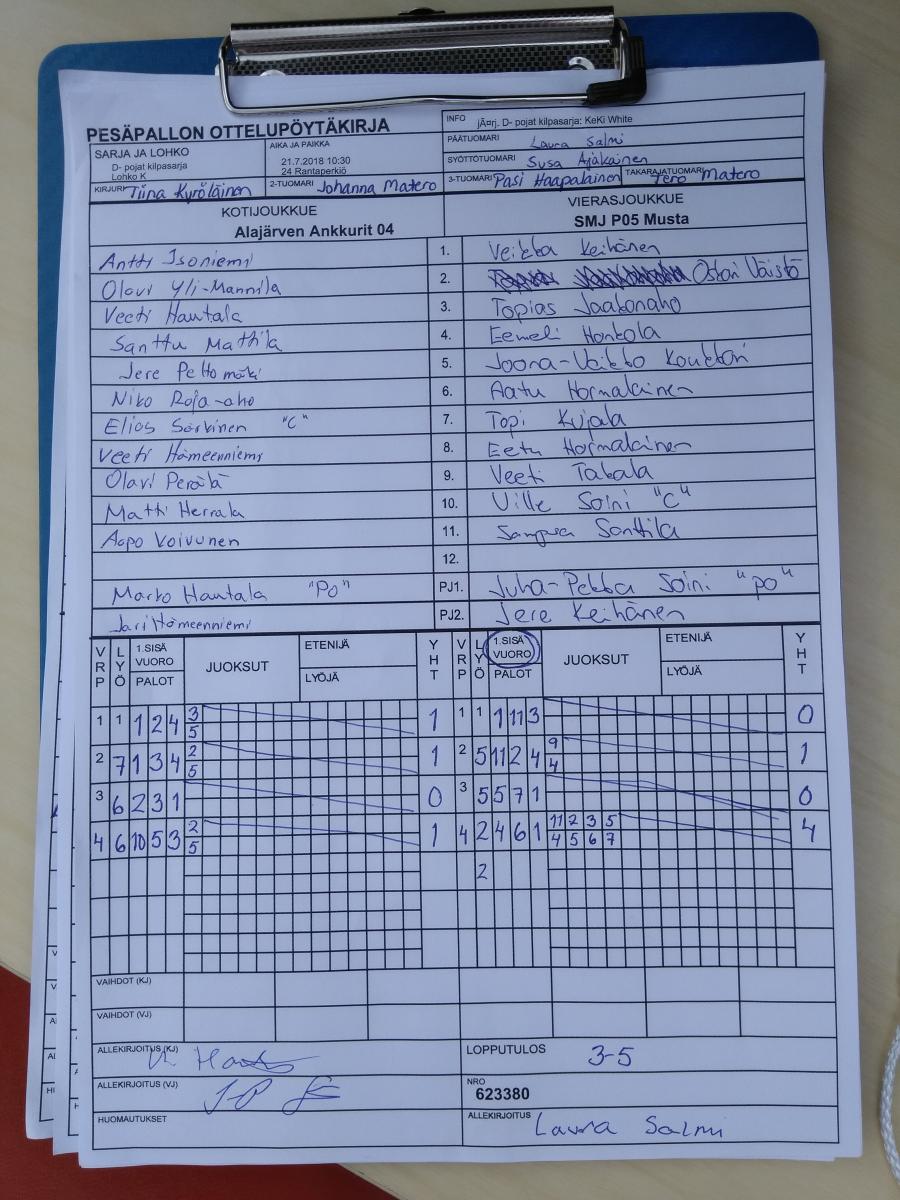 PESÄPALLON OTTELUPÖYTÄKIRJA
INFO jÃ¤rj. D- pojat kilpasarja: KeKi White
PÄÄTUOMARI Laura Salmi
SARJA JA LOHKO
D- pojat kilpasarja
Lohko K
AIKA JA PAIKKA
21.7.2018 10:30
24 Rantaperkiö
SYÖTTÖTUOMARI Susa Ajäkainen
KIRJURI Tiina Kyröläinen 2-TUOMARI Johanna Matero 3-TUOMARI Pasi Haapalainen TAKARAJATUOMARI Tero Matero
KOTIJOUKKUE VIERASJOUKKUE
Alajärven Ankkurit 04 SMJ P05 Musta
Antti Isoniemi 1. Veikka Keihänen
Olavi Yli-Mannila 2. Oskari Väistö
Veeti Hautala 3. Topias Jaakonaho
Santtu Mattila 4. Eemeli Honkola
Jere Peltomäki 5. Joona-Veikko
Niko Roja-aho 6. Aatu Hormalainen
Elias Särkinen "C" 7. Topi Kujala
Veeti Hämeenniemi 8. Eetu Hormalainen
Olavi Perälä 9. Veeti Takala
Matti Herrala 10. Ville Soini "C"
Aapo Koivunen 11. Santtila
12.
Marko Hautala "PO" PJ1. Juha-Pekka Soini "PO"
Jari Hämeenniemi PJ2. Jere Keihänen
VRP LYÖ 1.SISÄ VUORO PALOT JUOKSUT ETENIJÄ LYÖJÄ YHT VRP LYÖ 1.SISÄ VUORO PALOT JUOKSUT ETENIJÄ LYÖJÄ YHT
1 1 1 2 4 3 1 1 1 1 11 3 0
5
2 7 1 3 4 2 1 2 5 11 2 4 9 1
5 4
3 6 2 3 1 0 3 5 5 7 1 0
4 6 10 5 3 2 1 4 2 4 6 1 11 2 3 5 4
5 4 5 6 7
2
VAIHDOT (KJ)
VAIHDOT (VJ)
ALLEKIRJOITUS (KJ) LOPPUTULOS 3-5
ALLEKIRJOITUS (VJ) NRO
623380
HUOMAUTUKSET ALLEKIRJOITUS Laura Salmi